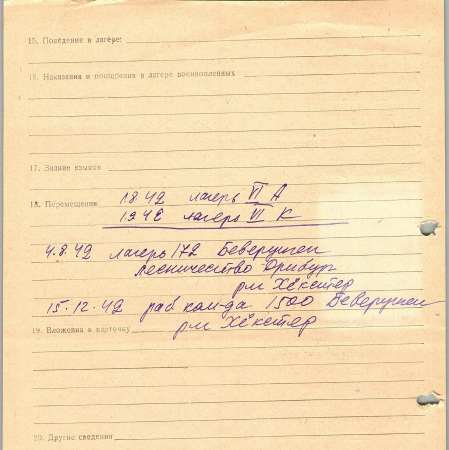 15. Поведение в лагере:
16. Наказания и поощрения в лагере военнопленных
17. Знание языков
18. Перемещения 1.8.42 лагерь VI А
1942 лагерь VI К
4.8.42 лагерь 172 Беверунген
лесничество Дрибург
рм Хёкстер
15.12.42 раб ком-да 1500 Беверунген
19. Вложения в карточку
рм Хёкстер
20. Другие сведения